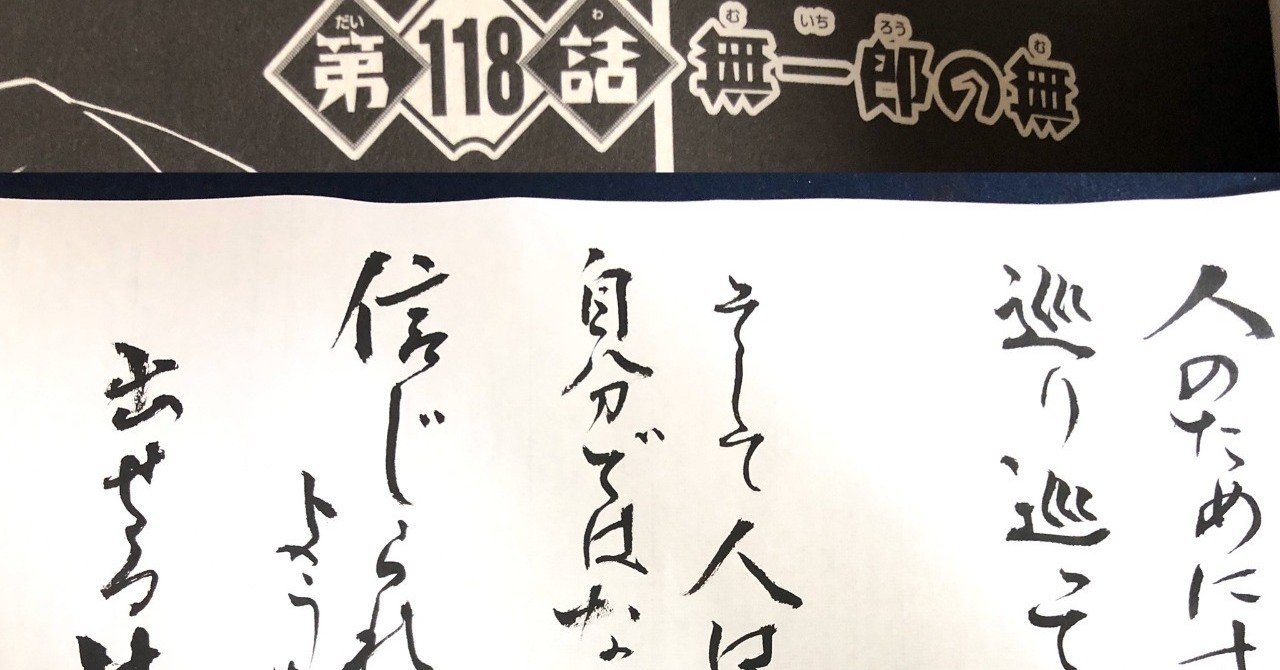 第118話 無一郎の無
だい わ む いち ろう む
人のためにす
巡り巡って
そして人は
自分ではな
信じられ
ような
出せる